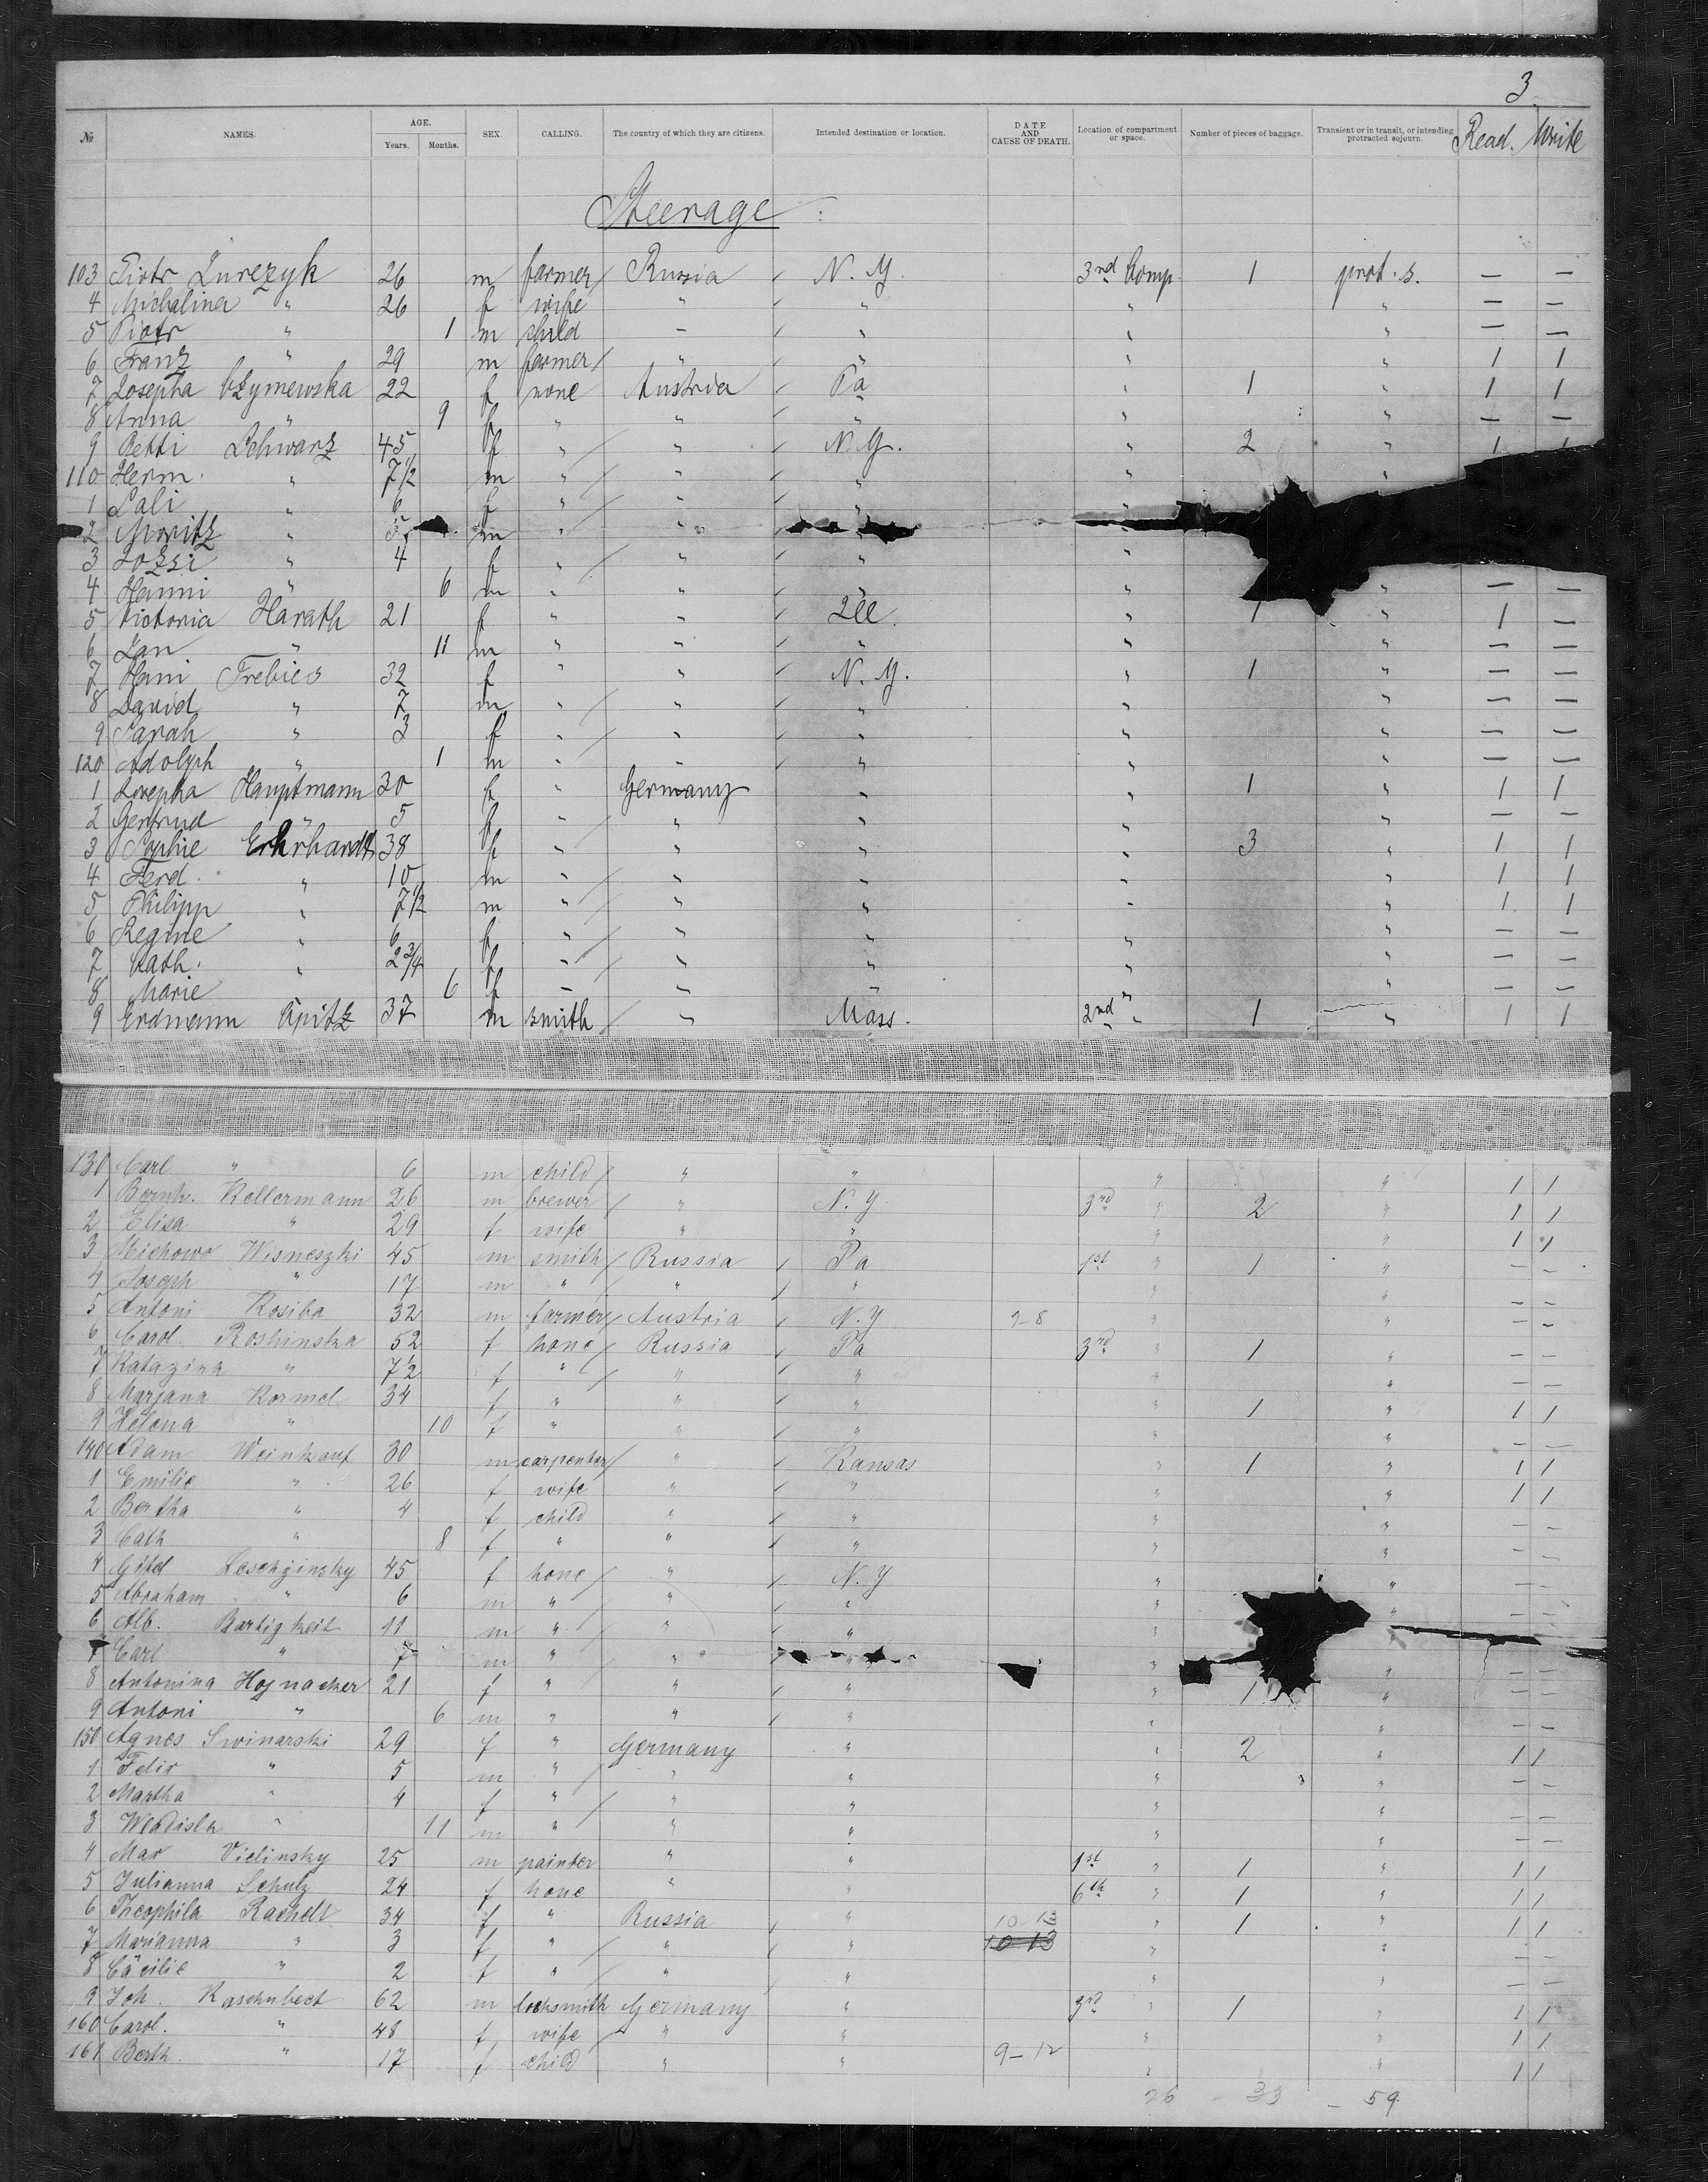 3.
№ NAMES. AGE. Years. Months. SEX. CALLING. The country of which they are citizens. Intended destination or location. DATE AND CAUSE OF DEATH. Location of compartment or space. Number of pieces of baggage. Transient or in transit, or intending protracted sojourn. Read. Write
Steerage :
103 Piotr Zurezyk 26 m farmer / Russia / N. Y. 3rd Comp. 1 prot. s. — —
4 Michalina " 26 f wife " / " " " — —
5 Piotr " 1 m child " / " " " — —
6 Franz " 29 m farmer / " / " " " 1 1
7 Josepha Czymewska 22 f none Austria / Pa " 1 " 1 1
8 Anna " 9 f " " / " " " — —
9 Betti Schwarz 45 f " / " / N. Y. " 2 " 1 1
110 Herm. " 7 1/2 m " / " / " " "
1 Sali " 6 f " / " / " "
2 Moritz " 5 m " " "
3 Rozsi " 4 f " / " / " "
4 Hanni " 6 m " " / " " " — —
5 Victoria Harath 21 f " " / Ill. " 1 " 1 —
6 Jan " 11 m " " / " " " — —
7 Hani Trebics 32 f " " / N. Y. " 1 " — —
8 David " 7 m " / " / " " " — —
9 Sarah " 3 f " / " / " " " — —
120 Adolph " 1 m " " / " " " — —
1 Josepha Hauptmann 30 f " Germany " " 1 " 1 1
2 Gertrud " 5 f " / " " " " — —
3 Sophie Ehrhardt 38 f " / " " " 3 " 1 1
4 Ferd. " 10 m " / " " " " 1 1
5 Philipp " 7 1/2 m " / " " " " 1 1
6 Regine " 6 f " / " " " " — —
7 Kath. " 2 3/4 f " / " " " " — —
8 Marie " 6 f " " " " " — —
9 Erdmann Opitz 37 m smith / " Mass. 2nd " 1 " 1 1
130 Carl " 6 m child / " " " " 1 1
1 Bernh. Kellermann 26 m brewer / " N. Y 3rd " 2 " 1 1
2 Elisa " 29 f wife " " " " 1 1
3 Michowo Wisneszki 45 m smith / Russia / Pa 1st " 1 " — —
4 Joseph " 17 m " / " / " " " — —
5 Antoni Kosiba 32 m farmer / Austria / N. Y 9-8 " " — —
6 Carol. Roshinska 52 f none / Russia / Pa 3rd " 1 " — —
7 Katazina " 7 1/2 f " / " / " " " — —
8 Marjana Kormel 34 f " " / " " 1 " 1 1
9 Helena " 10 f " " / " " " — —
140 Adam Weinkauf 30 m carpenter / " / Kansas " 1 " 1 1
1 Emilie " 26 f wife " / " " " 1 1
2 Bertha " 4 f child " / " " " — —
3 Cath " 8 f " " / " " " — —
4 Gitel Leschzinsky 45 f none / " / N. Y " " — —
5 Abraham " 6 m " / " / " " " — —
6 Alb. Bartigkeit 11 m " " / " " "
7 Carl " 7 m " " / " " " — —
8 Antonina Hojnacker 21 f " " / " " 1 " — —
9 Antoni " 6 m " " / " " " — —
150 Agnes Swinarski 29 f " Germany " " 2 " 1 1
1 Felix " 5 m " / " " " " — —
2 Martha " 4 f " / " " " " — —
3 Wladisla " 11 m " " " " " — —
4 Max Vielinsky 25 m painter " " 1st " 1 " 1 1
5 Julianna Schulz 24 f none " " 6th " 1 " 1 1
6 Theophila Rachelt 34 f " Russia / " " 1 " 1 1
7 Marianna " 3 f " / " / " 10 13 " " — —
8 Cäcilie " 2 f " / " / " " " — —
9 Joh. Kaschubect 62 m locksmith Germany " 3rd " 1 " 1 1
160 Carol. " 48 f wife / " " " " 1 1
161 Berth. " 17 f child " " 9-12 " " 1 1
26 - 33 - 59